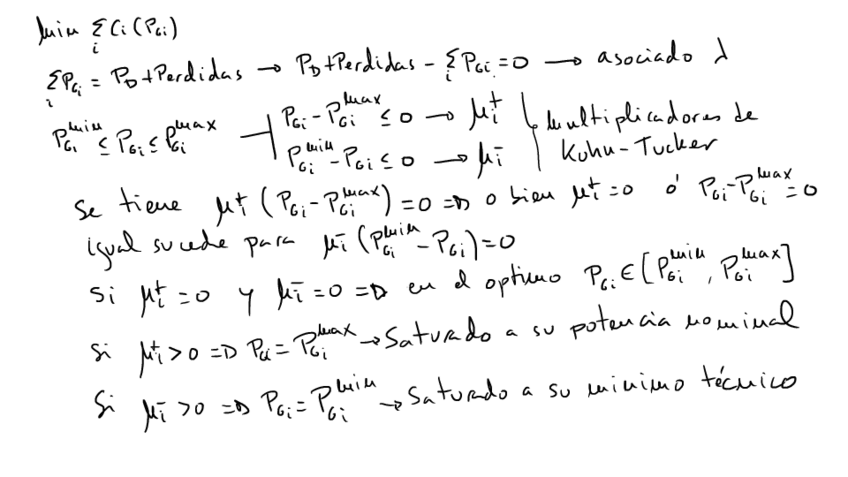 min Σ_i C_i(P_Gi)
Σ_i P_Gi = P_D + Perdidas → P_D + Perdidas - Σ_i P_Gi = 0 → asociado λ
P_Gi^min ≤ P_Gi ≤ P_Gi^max → P_Gi - P_Gi^max ≤ 0 → μ_i^+ | multiplicadores de
P_Gi^min - P_Gi ≤ 0 → μ_i^- | Kuhn-Tucker
Se tiene μ_i^+ (P_Gi - P_Gi^max) = 0 ⇒ o bien μ_i^+ = 0 ó P_Gi - P_Gi^max = 0
igual sucede para μ_i^- (P_Gi^min - P_Gi) = 0
Si μ_i^+ = 0 y μ_i^- = 0 ⇒ en el optimo P_Gi ∈ [P_Gi^min, P_Gi^max]
Si μ_i^+ > 0 ⇒ P_Gi = P_Gi^max → Saturado a su potencia nominal
Si μ_i^- > 0 ⇒ P_Gi = P_Gi^min → Saturado a su minimo técnico